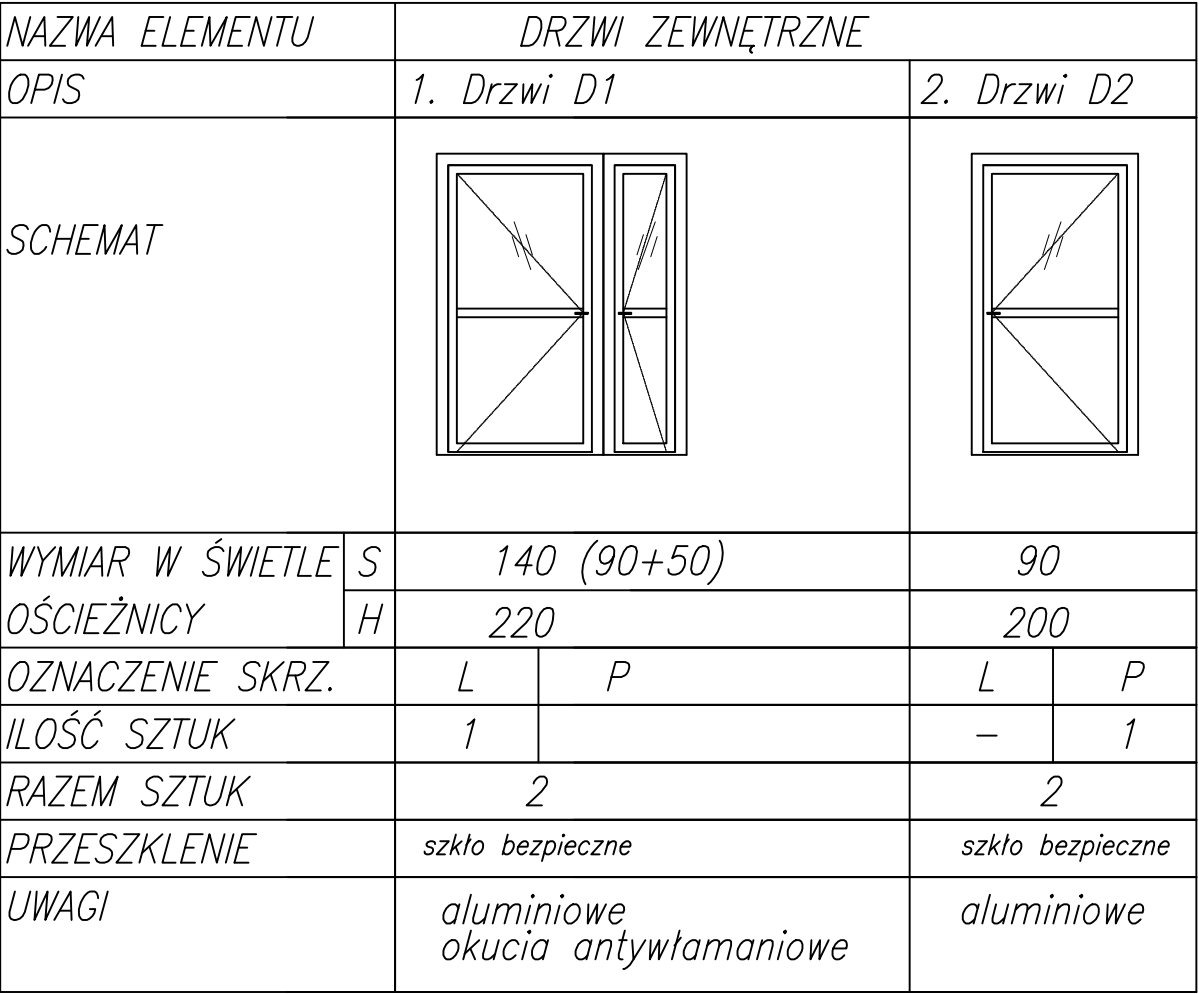 NAZWA ELEMENTU DRZWI ZEWNĘTRZNE
OPIS 1. Drzwi D1 2. Drzwi D2
SCHEMAT
WYMIAR W ŚWIETLE S 140 (90+50) 90
OŚCIEŻNICY H 220 200
OZNACZENIE SKRZ. L P L P
ILOŚĆ SZTUK 1 – 1
RAZEM SZTUK 2 2
PRZESZKLENIE szkło bezpieczne szkło bezpieczne
UWAGI aluminiowe aluminiowe
okucia antywłamaniowe